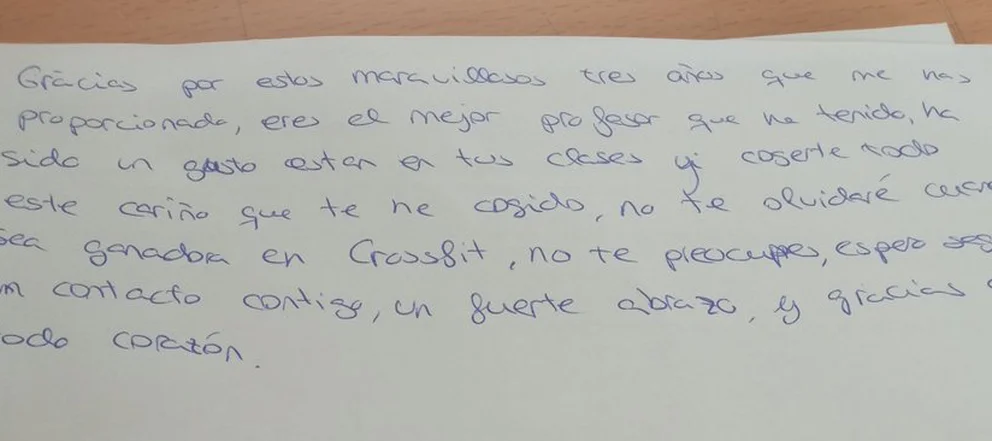 Gracias por estos maravillosos tres años que me has
proporcionado, eres el mejor profesor que he tenido, ha
sido un gusto estar en tus clases y coserte todo
este cariño que te he cogido, no te olvidaré cuan
sea ganadora en Crossfit, no te preocupes, espero seg
en contacto contigo, un fuerte abrazo, y gracias
odo corazón.